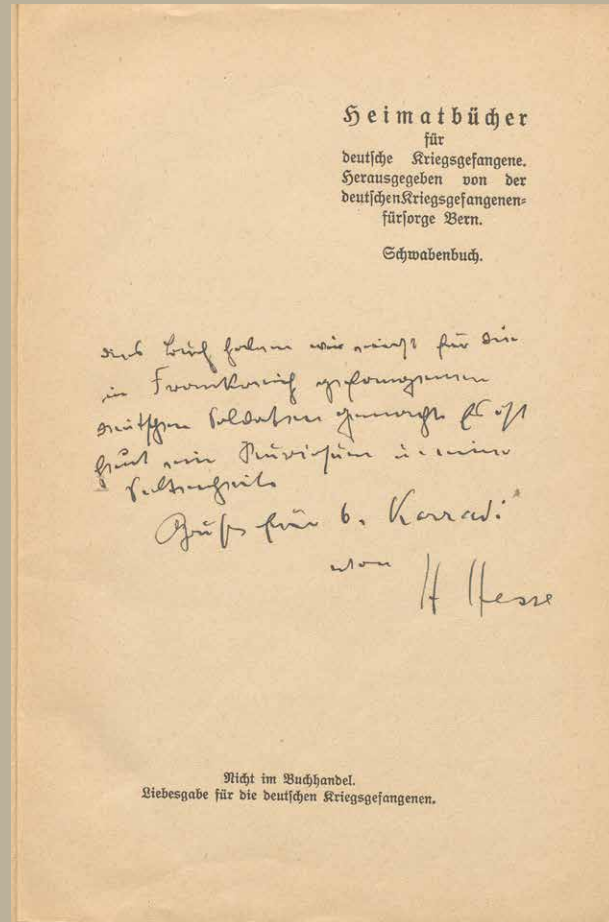 Heimatbücher
für
deutsche Kriegsgefangene.
Herausgegeben von der
deutschen Kriegsgefangenen=
fürsorge Bern.
Schwabenbuch.
das Buch haben wir einst für die
in Frankreich gefangenen
deutschen Soldaten gemacht. Es ist
heut ein Kuriosum u. eine
Seltenheit.
Gruß für b. Korradi
von
H Hesse
Nicht im Buchhandel.
Liebesgabe für die deutschen Kriegsgefangenen.